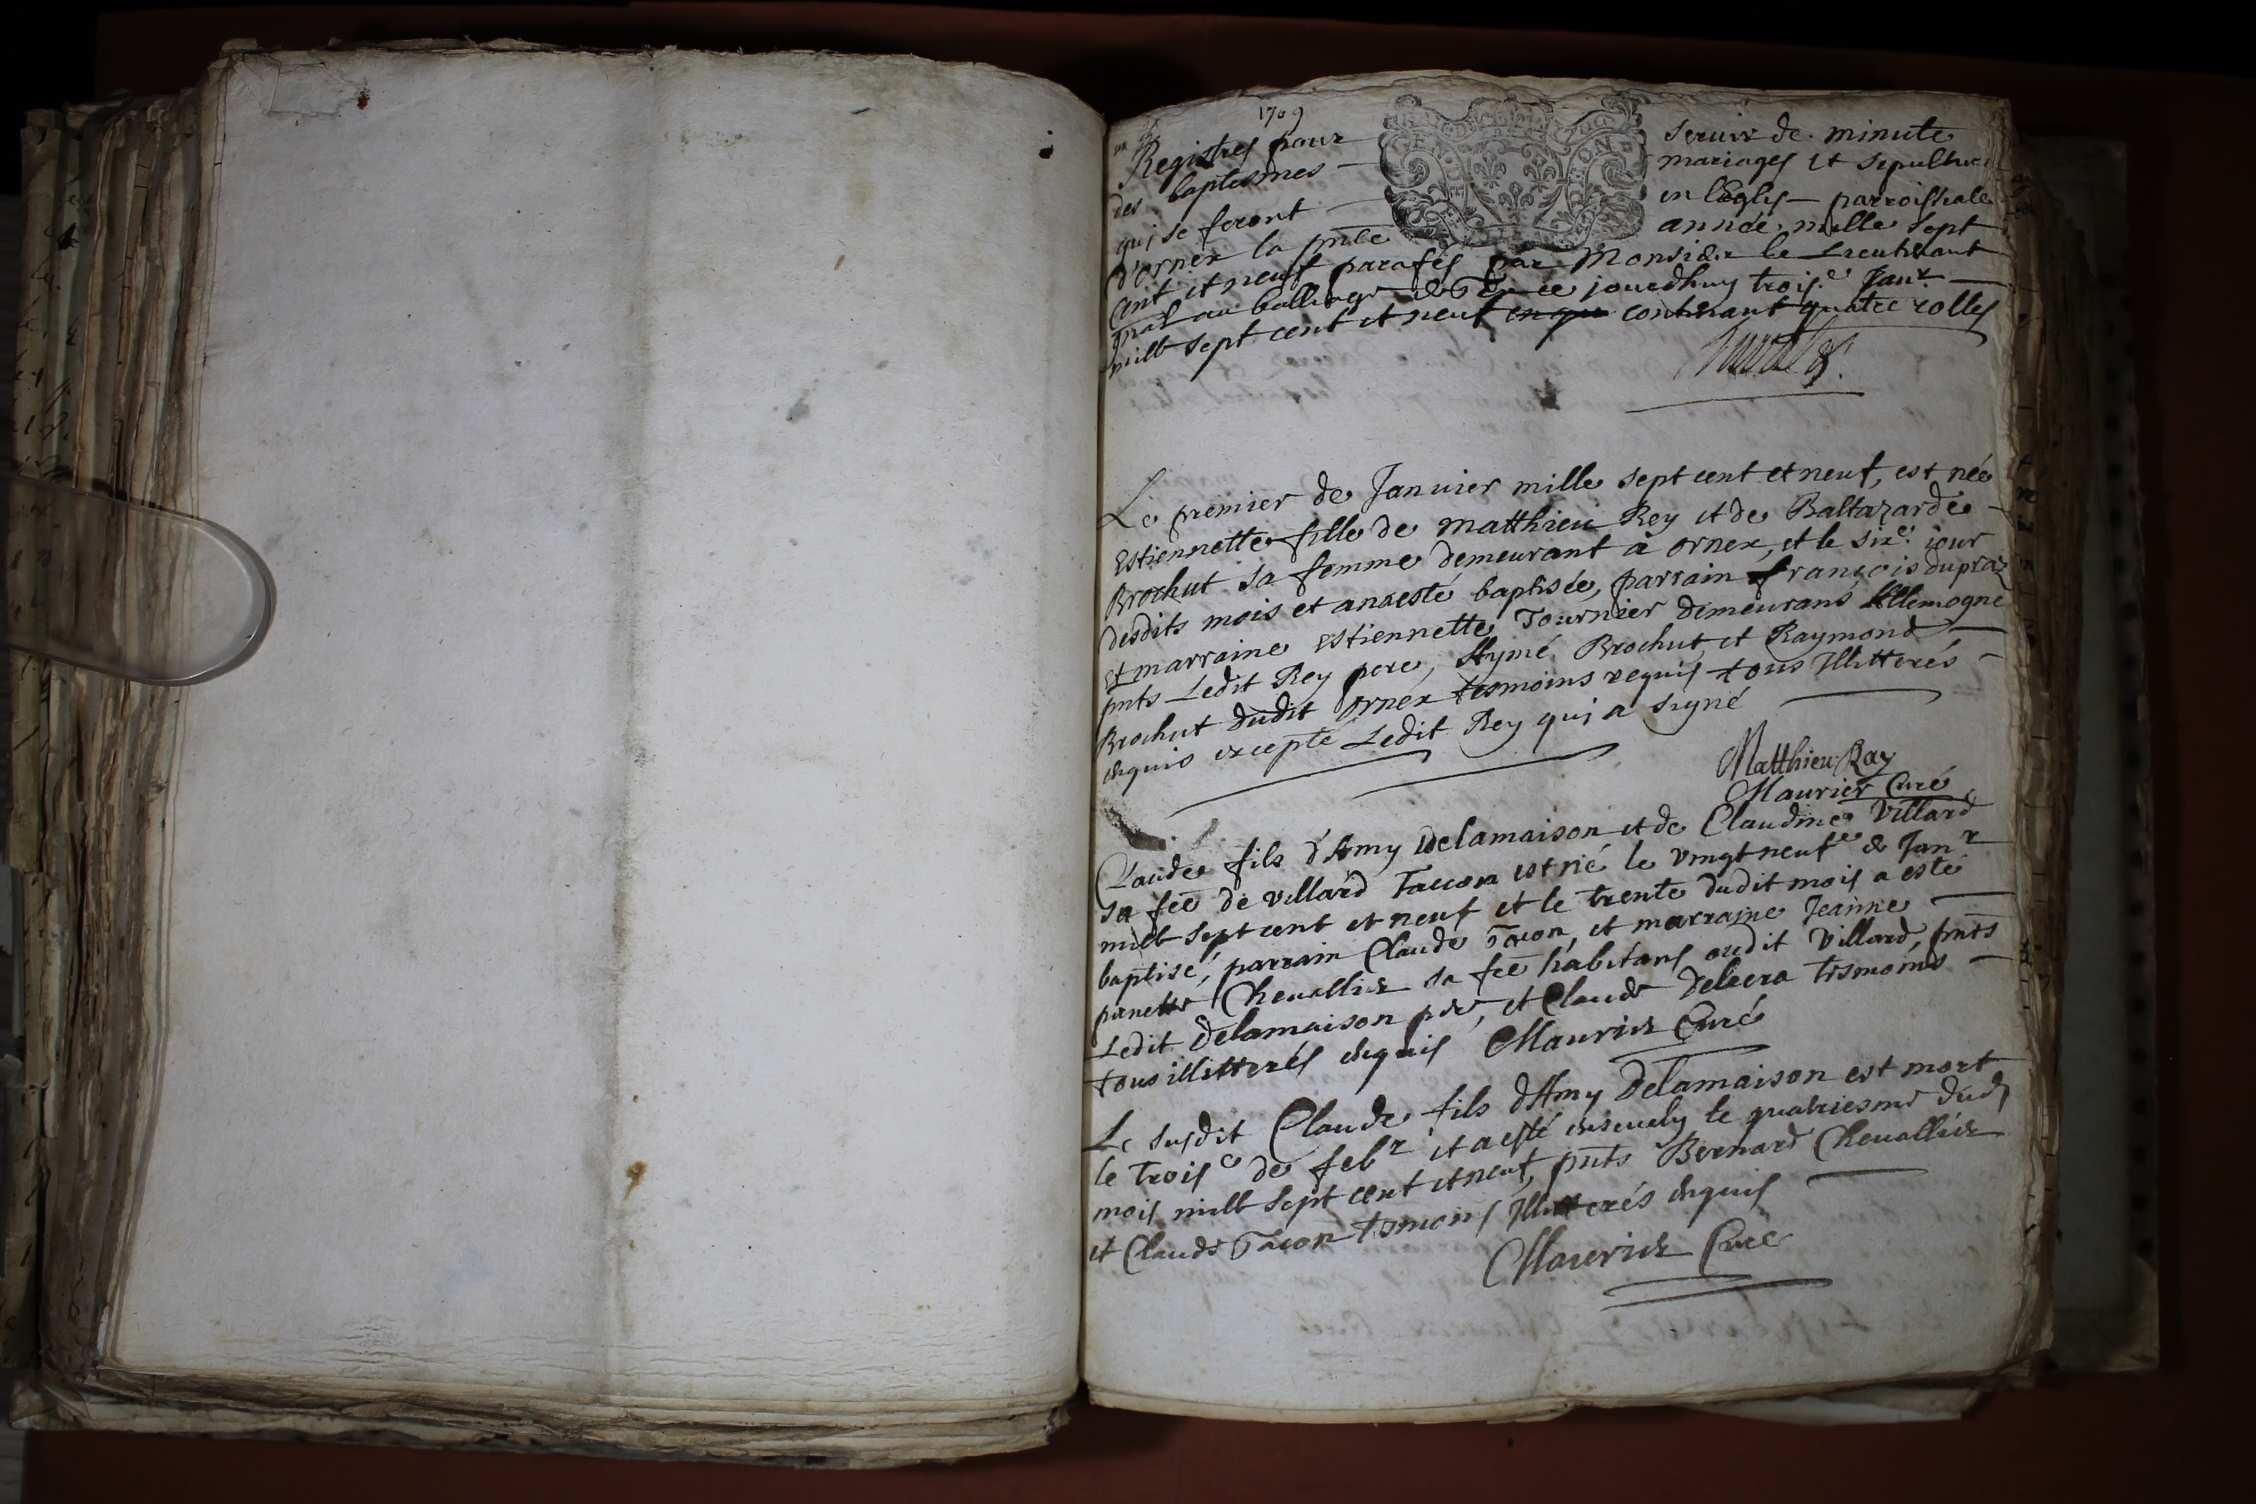 1709
Registres pour servir de minute
des baptesmes mariages et sepultures
qui se feront en l'Eglis parroissiale
d'ornex la pnte année mille sept
cent et neuf parafés par Monsieur le Lieutenant
gnal au balliage de Gex ce jourdhuy trois.e Janr.
mill sept cent et neuf contenant quatre rolles
Le premier de Janvier mille sept cent et neuf, est née
Estiennette fille de Matthieu Rey et de Baltazarde
Brochut sa femme demeurant à ornex, et le sixe. iour
desdits mois et an a esté baptisée, parrain françois dupraz
et marraine Estiennette Tournier demeurans Allemogne
pnts Ledit Rey pere, Aymé Brochut, et Raymond
Brochut dudit Ornex tesmoins requis tous Illitterés
enquis excepté Ledit Rey qui a signé
Matthieu Ray
Maurier Curé
Claude fils d'Amy Delamaison et de Claudine Villard
sa fee de villard Taccon est né le vingt neufe de Janr
mill sept cent et neuf et le trente dudit mois a esté
baptisé, parrain Claude Tacon, et marraine Jeanne
pernette Chevallier sa fee habitans audit Villard, pnts
Ledit Delamaison pere, et Claude Delecra tesmoins
tous illitterés enquis Maurier Curé
Le susdit Claude fils d'Amy Delamaison est mort
le troise de febr et a esté ensevely le quatriesme dud
mois mill sept cent et neuf, pnts Bernard Chevallier
et Claude Tacon tesmoins Illitterés enquis
Maurier Curé